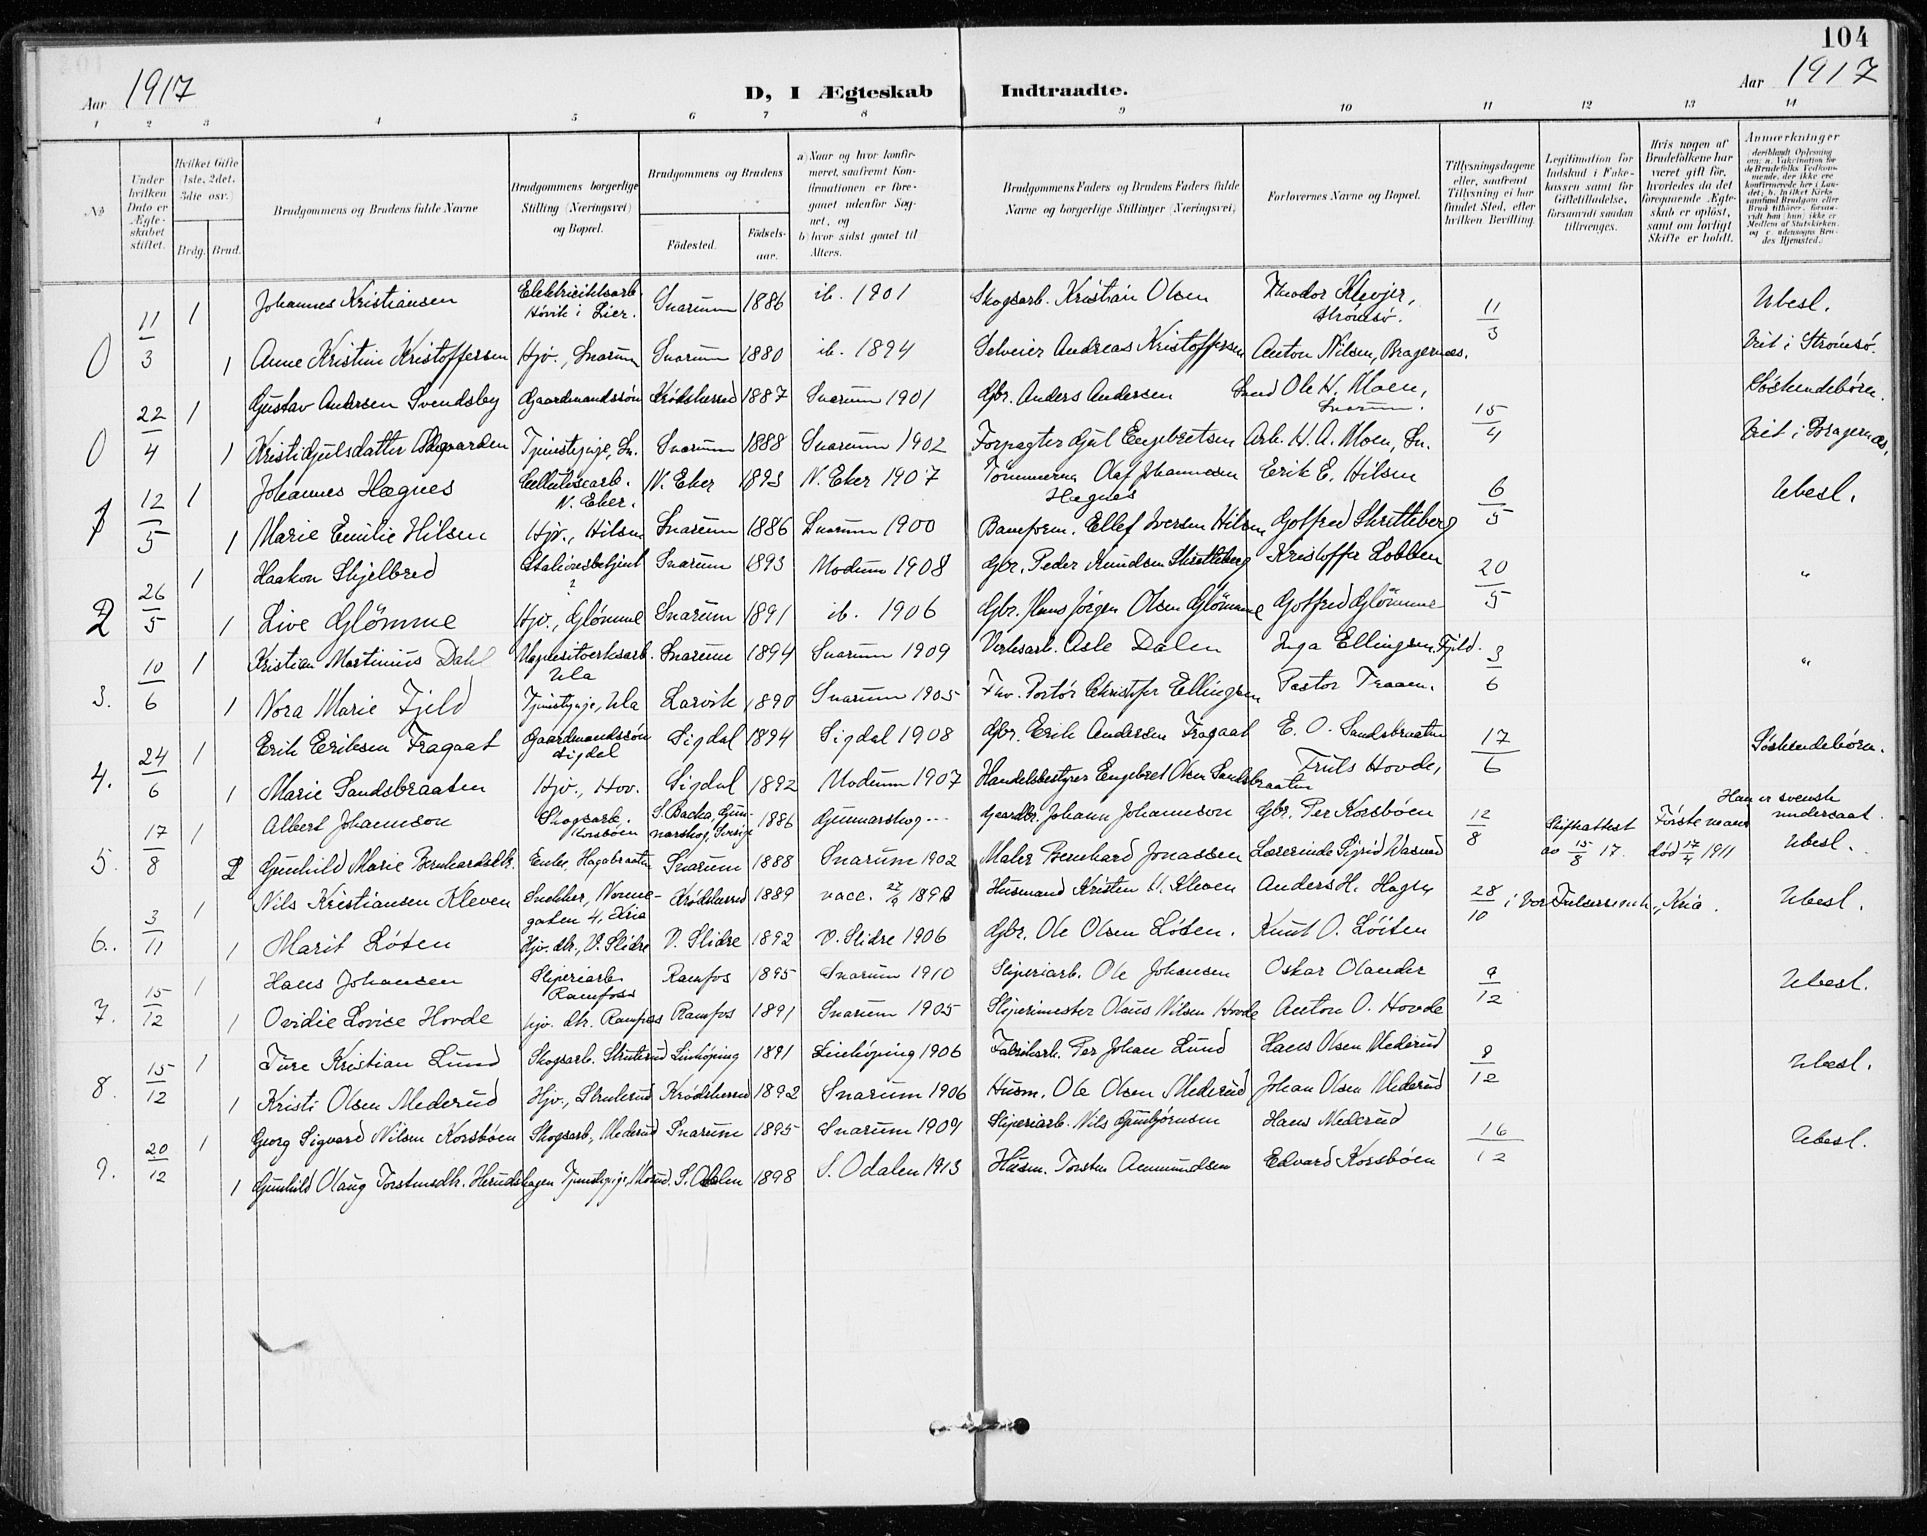 104
Aar 1917
D, I Ægteskab Indtraadte.
Aar 1917
1 2 3 4 5 6 7 8 9 10 11 12 13 14
No
Under hvilken Dato er Ægteskabet stiftet.
Hvilket Gifte (1ste, 2det, 3die osv.)
Brdg. Brud.
Brudgommens og Brudens fulde Navne
Brudgommens borgerlige Stilling (Næringsvei) og Bopæl.
Brudgommens og Brudens
Födested. Födsels-aar.
a) Naar og hvor konfirmeret, saafremt Konfirmationen er foregaaet udenfor Sognet, og
b) hvor sidst gaaet til Alters.
Brudgommens Faders og Brudens Faders fulde Navne og borgerlige Stillinger (Næringsvei)
Forlovernes Navne og Bopæl.
Tillysningsdagene eller, saafremt Tillysning ei har fundet Sted, efter hvilken Bevilling.
Legitimation for Indskud i Enkekassen samt for Giftetilladelse, forsaavidt saadan tiltrænges.
Hvis nogen af Brudefolkene har været gift før, hvorledes da det foregaaende Ægteskab er oplöst, samt om lovligt Skifte er holdt.
Anmærkninger
0 11/3 1 Johannes Kristiansen Elektricitetsarb. Høvik i Lier. Snarum 1886 ib. 1901 Skogsarb. Kristian Olsen Theodor Klevjer, Strømsø. 11/3 Ubesl.
1 Anne Kristine Kristoffersen Hjv., Snarum Snarum 1880 ib. 1894 Selveier Andreas Kristoffersen Anton Nilsen, Bragernæs. Viet i Strømsø.
0 22/4 1 Gustav Andersen Svendsby Gaardmandssøn Krødsherred 1887 Snarum 1901 Gbr. Anders Andersen Ole H. Moen, Snarum. 15/4 Søskendebørn.
1 Kristi Gulsdatter Tjenestepige, Sn. Snarum 1888 Snarum 1902 Forpagter Gul Engebretsen Arb. H. A. Moen, Sn. Viet i Bragernæs.
1 12/5 1 Johannes Hægnes Cellulosearb. N. Eker. N. Eker 1893 N. Eker 1907 Tømmerm. Olaf Johannesen Hægnes Erik E. Hilsen 6/5 Ubesl.
1 Marie Emilie Hilsen Hjv., Hilsen Snarum 1886 Snarum 1900 Baneform. Ellef Iversen Hilsen Gotfred Skretteberg
2 26/5 1 Haakon Skjelbred Stationsbetjent ? Snarum 1893 Modum 1908 Gbr. Peder Knudsen Skretteberg Kristoffer Lobben 20/5 "
1 Live Glömme Hjv., Glømme Snarum 1891 ib. 1906 Gbr. Hans Jørgen Olsen Glömme Gotfred Glömme
3. 10/6 1 Kristian Martinius Dahl Magnesitverksarb. Ula Snarum 1894 Snarum 1909 Verksarb. Asle Dalen Inga Ellingsen Fjeld. 3/6 "
1 Nora Marie Fjeld Tjenestepige, Ula Larvik 1890 Snarum 1905 Fhv. Portør Christofer Ellingsen Pastor Traaen.
4. 24/6 1 Erik Eriksen Fragaat Gaardmandssøn Sigdal Sigdal 1894 Sigdal 1908 Gbr. Erik Andersen Fragaat E. O. Sandsbraaten 17/6 Søskendebørn.
1 Marie Sandsbraaten Hjv., Hov. Sigdal 1892 Modum 1907 Handelsbestyrer Engebret Olsen Sandsbraaten Truls Hovde,
5. 17/8 1 Albert Johannson Skogsarb. Korsbøen S. Backa, Gunnarskog, Sverige 1886 Gunnarskog --- Gaardbr. Johann Johannson Gbr. Per Korsbøen 12/8 Skifteattest av 15/8 17. Første mand død 17/4 1911 Han er svensk undersaat. Ubesl.
2 Gunhild Marie Bernhardsdtr. Enke, Hagabraaten Snarum 1888 Snarum 1902 Maler Bernhard Jonassen Lærerinde Sigrid Wasrud
6. 3/11 1 Nils Kristiansen Kleven Snekker, Nonnegaten 4, Kria Krødsherred 1889 vacc. 27/9 1890 Husmand Kristen N. Kleven Anders H. Hagen 28/10 i Vor Frelsers menh., Kria. Ubesl.
1 Marit Løten Hjv. dtr., V. Slidre V. Slidre 1892 V. Slidre 1906 Gbr. Ole Olsen Løten. Knut O. Løiten
7. 15/12 1 Hans Johansen Sliperiarb. Ramfoss Ramfos 1895 Snarum 1910 Sliperiarb. Ole Johansen Oskar Olander 9/12 Ubesl.
1 Ovidie Lovise Hovde hjv. dtr. Ramfos Ramfos 1891 Snarum 1905 Sliperimester Olaus Nilsen Hovde Anton O. Hovde
8. 15/12 1 Ture Kristian Lund Skogsarb. Struterud Linköping 1891 Linköping 1906 Fabrikarb. Per Johan Lund Hans Olsen Mederud 9/12 Ubesl.
1 Kristi Olsen Mederud Hjv., Struterud Krødsherred 1892 Snarum 1906 Husm. Ole Olsen Mederud Johan Olsen Mederud
9. 20/12 1 Georg Sigvard Nilsen Korsbøen Skogsarb., Mederud Snarum 1895 Snarum 1909 Sliperiarb. Nils Gunbjørnsen Hans Mederud 16/12 Ubesl.
1 Gunhild Olaug Torstensdtr. Herudshagen Tjenestepige, S. Odalen 1898 S. Odalen 1913 Husm. Torsten Aamundsen Edvard Korsbøen